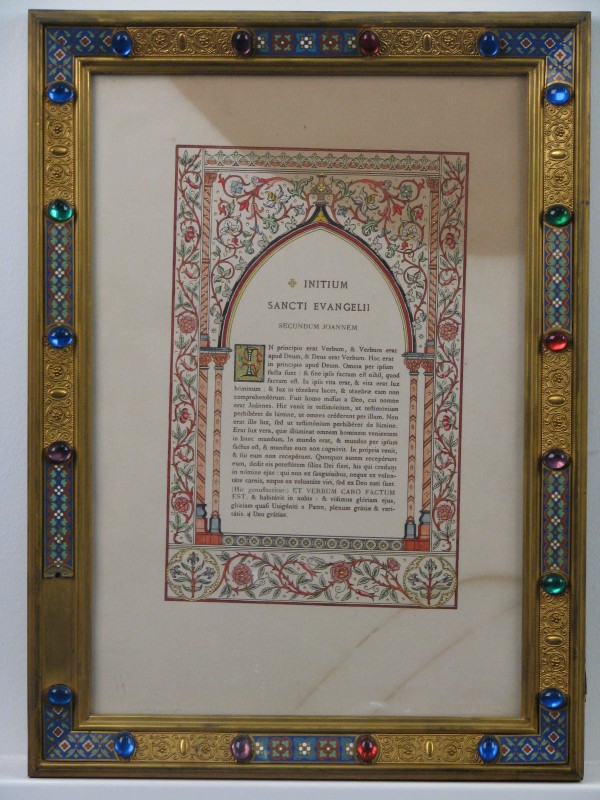 ✠ INITIUM
SANCTI EVANGELII
SECUNDUM JOANNEM
IN principio erat Verbum, & Verbum erat
apud Deum, & Deus erat Verbum. Hoc erat
in principio apud Deum. Omnia per ipsum
facta sunt : & sine ipso factum est nihil, quod
factum est. In ipso vita erat, & vita erat lux
hóminum : & lux in ténebris lucet, & ténebræ eam non
comprehendérunt. Fuit homo missus a Deo, cui nomen
erat Joánnes. Hic venit in testimónium, ut testimónium
perhibéret de lúmine, ut omnes créderent per illum. Non
erat ille lux, sed ut testimónium perhibéret de lúmine.
Erat lux vera, quæ illúminat omnem hóminem veniéntem
in hunc mundum. In mundo erat, & mundus per ipsum
factus est, & mundus eum non cognóvit. In própria venit,
& sui eum non recepérunt. Quotquot autem recepérunt
eum, dedit eis potestátem fílios Dei fíeri, his qui credunt
in nómine ejus : qui non ex sanguínibus, neque ex volun-
táte carnis, neque ex voluntáte viri, sed ex Deo nati sunt.
(Hic genuflectitur:) ET VERBUM CARO FACTUM
EST, & habitávit in nobis : & vídimus glóriam ejus,
glóriam quasi Unigéniti a Patre, plenum grátiæ & veri-
tátis. ℟ Deo grátias.